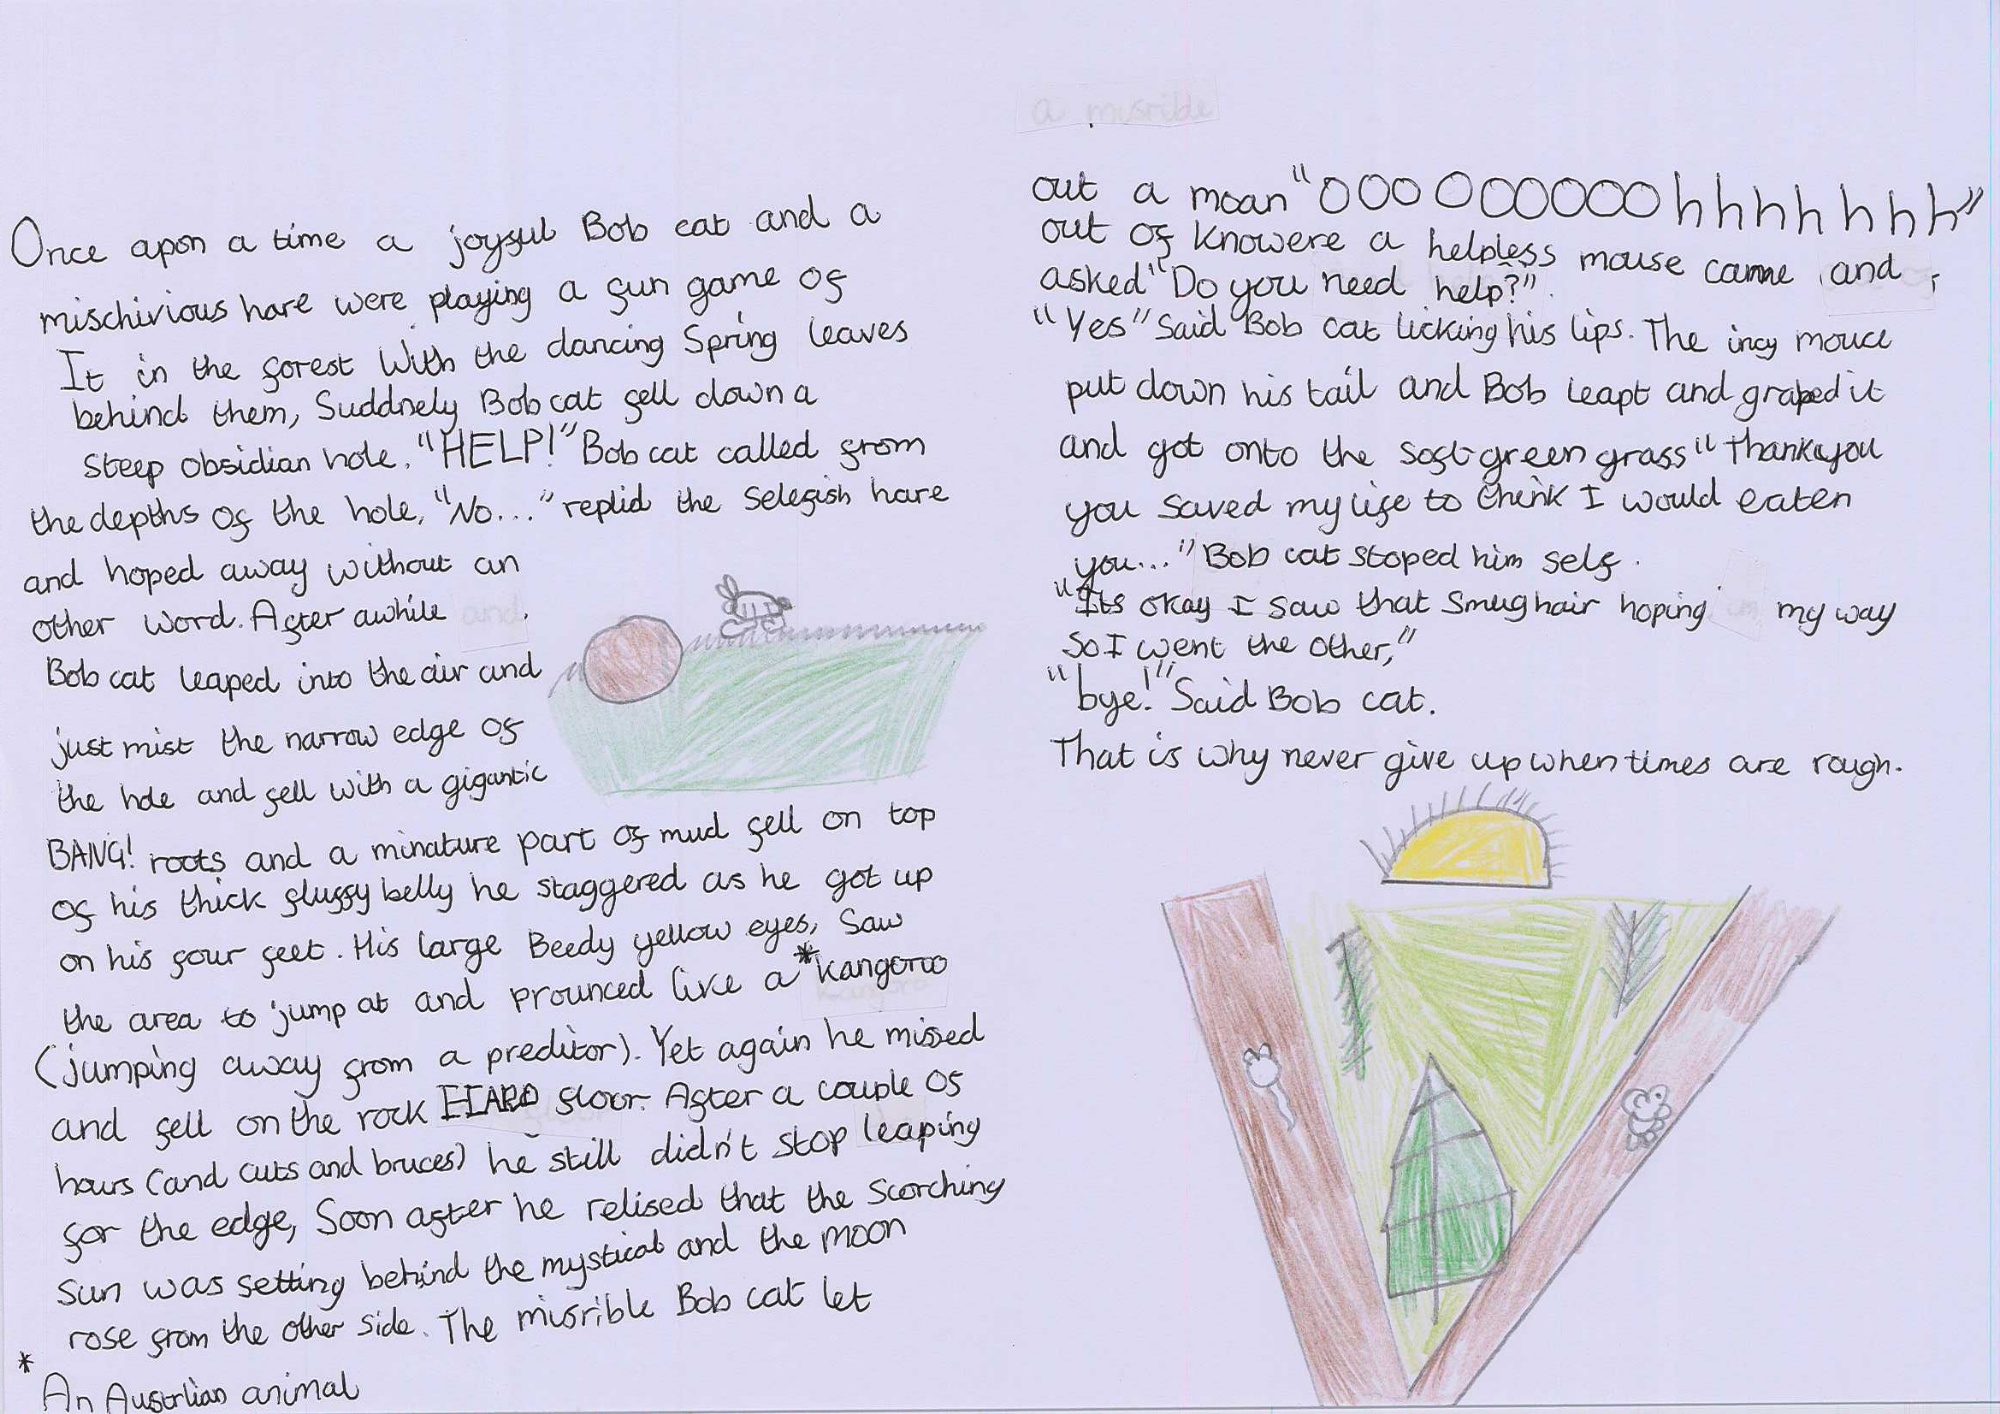 Once apon a time a joyful Bob cat and a
mischivious hare were playing a fun game of
It in the forest With the dancing Spring leaves
behind them, Suddnely Bob cat fell down a
steep obsidian hole. "HELP!" Bob cat called from
the depths of the hole, "No..." replid the selefish hare
and hoped away without an
other word. After awhile
Bob cat leaped into the air and
just mist the narrow edge of
the hole and fell with a gigantic
BANG! roots and a minature part of mud fell on top
of his thick fluffy belly he staggered as he got up
on his four feet. His large Beedy yellow eyes, Saw
the area to jump at and prounced like a *kangoroo
(jumping away from a preditor). Yet again he missed
and fell on the rock HARD floor. After a couple of
hours (and cuts and bruces) he still didn't stop leaping
for the edge, Soon after he relised that the scorching
sun was setting behind the mystical and the moon
rose from the other side. The misrible Bob cat let
* An Ausorlian animal
a misrible
out a moan "OOO OOOOOOOhhhhhhh"
out of knowere a helpless mouse came and
asked "Do you need help?".
"Yes" Said Bob cat licking his lips. The incy mouce
put down his tail and Bob leapt and graped it
and got onto the soft green grass "Thankyou
you saved my life to think I would eaten
you..." Bob cat stoped him self.
"Its okay I saw that Smug hair hoping my way
so I went the other,"
"bye!" Said Bob cat.
That is why never give up when times are rough.